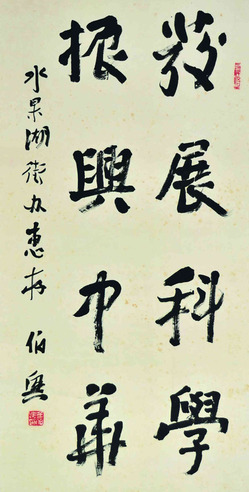 發展科學
振興中華
水果湖街办惠存 伯興